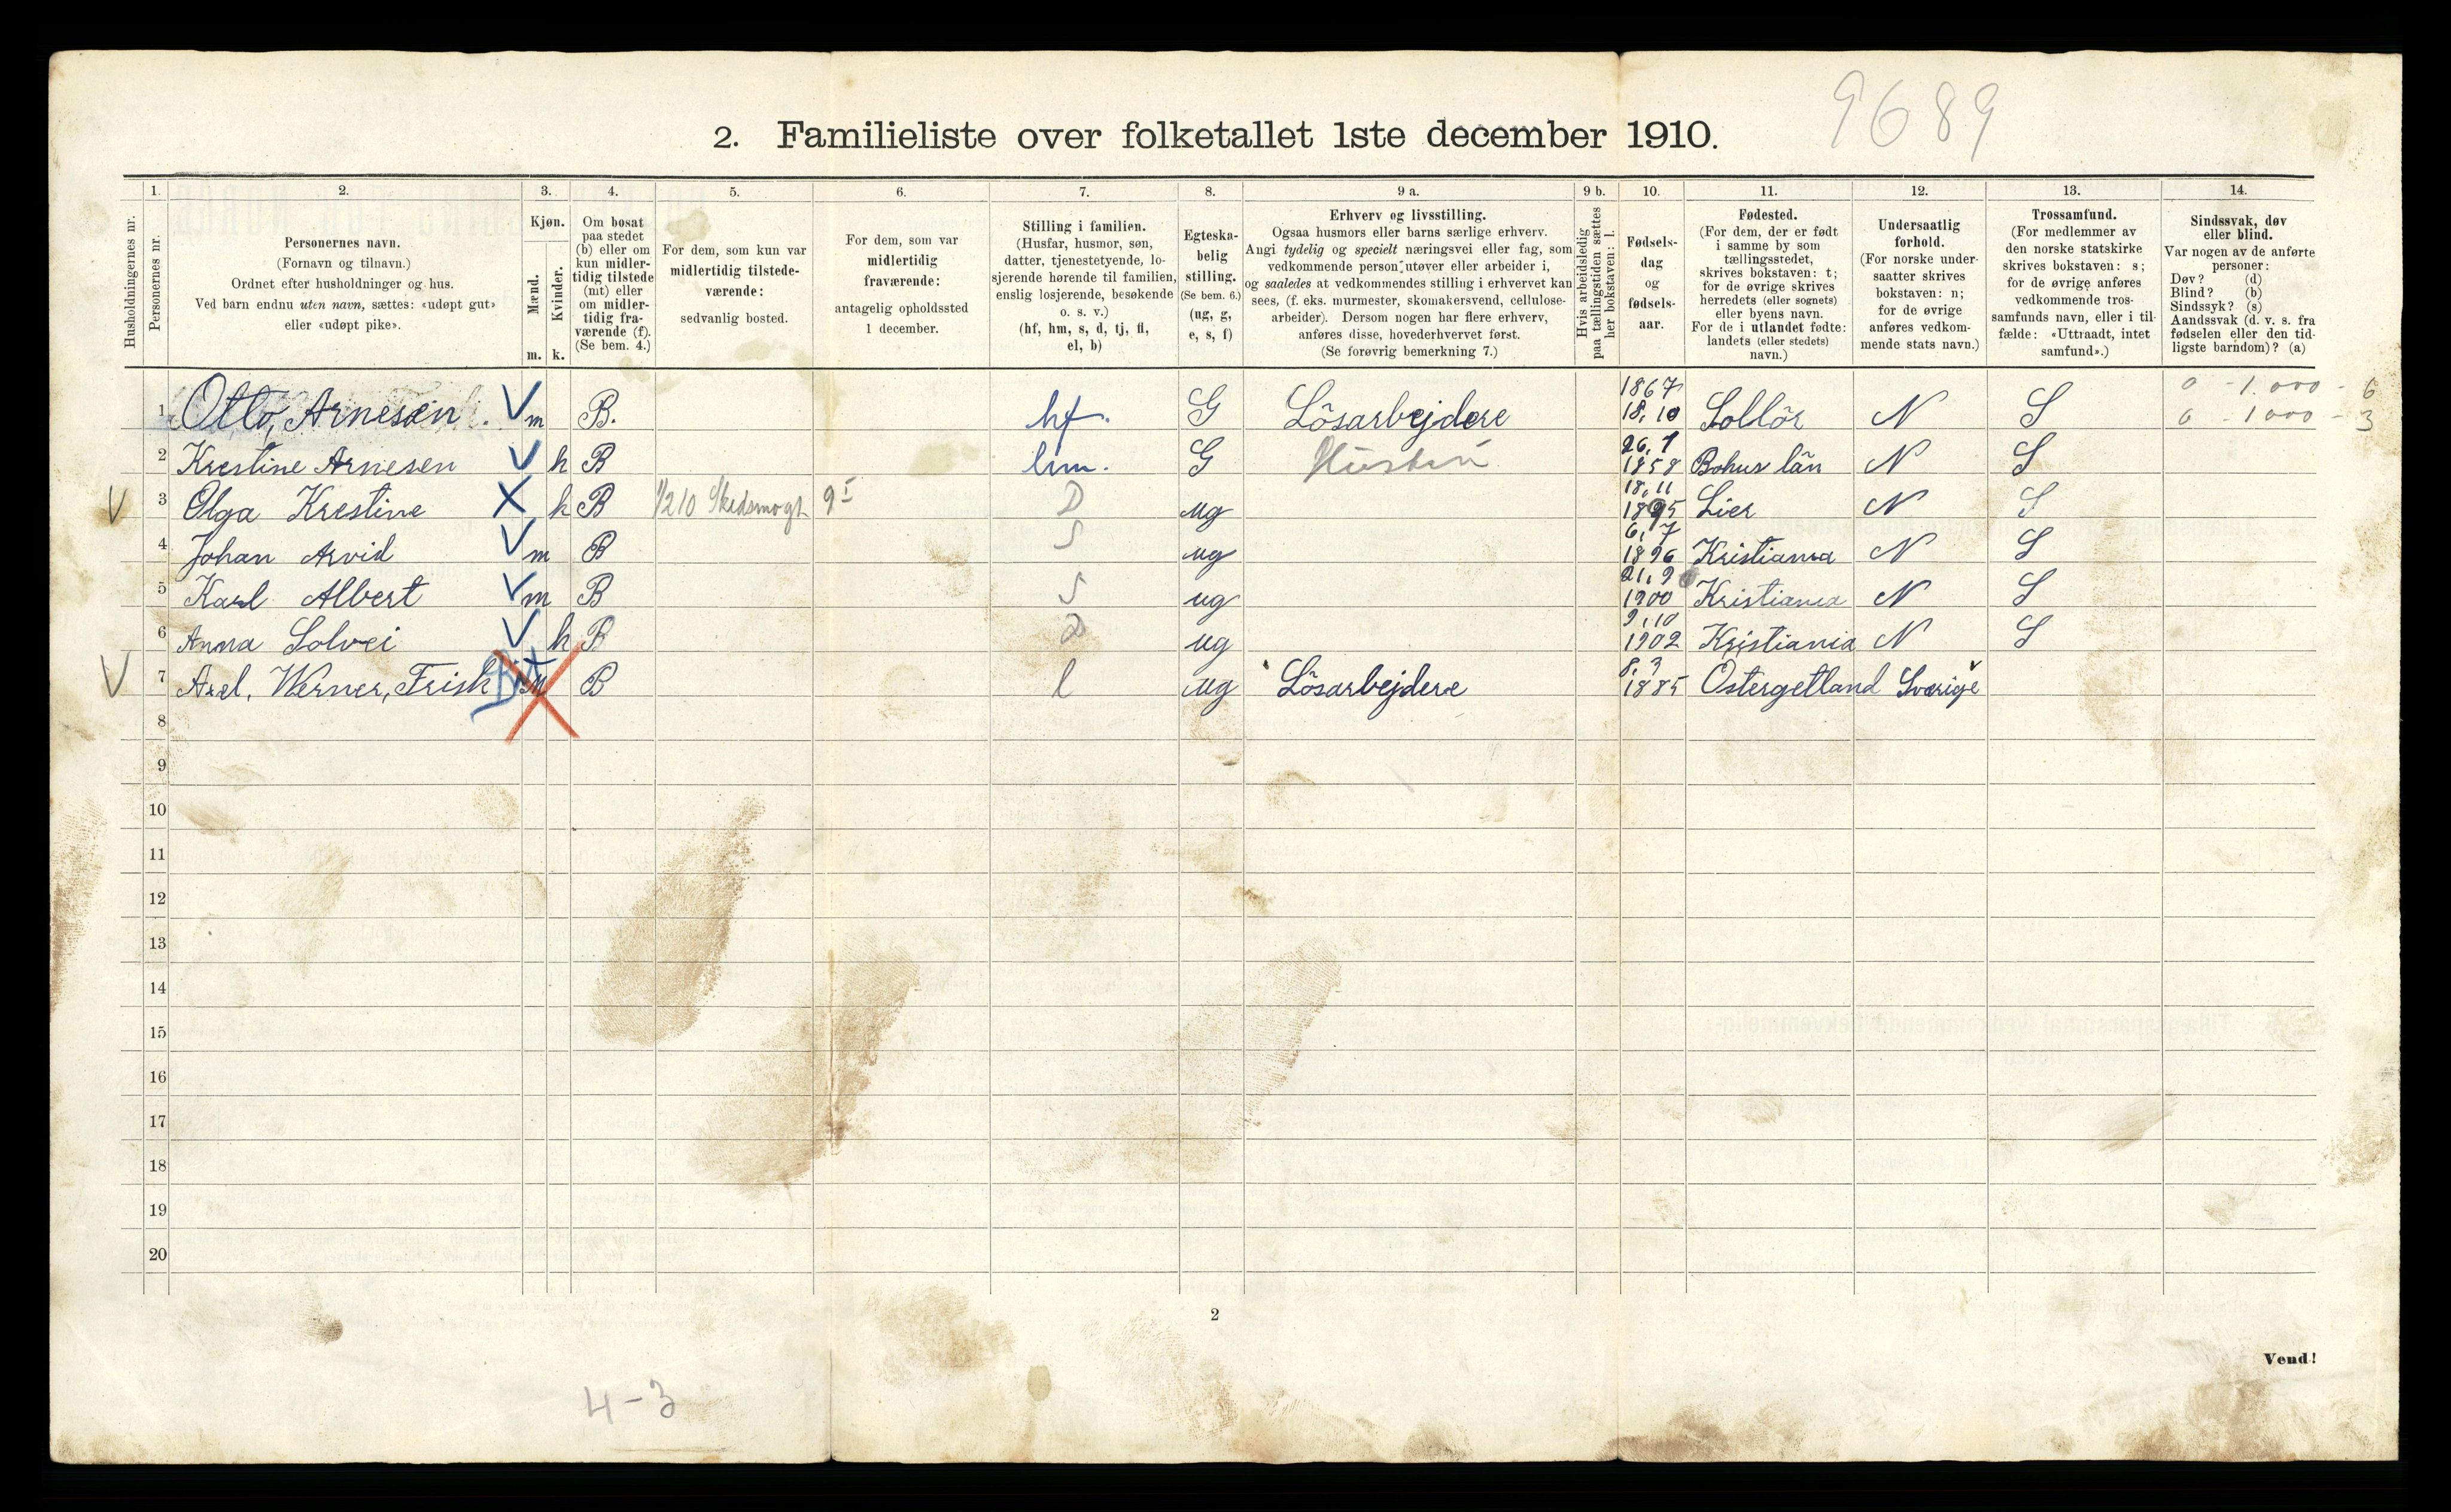 9689
2. Familieliste over folketallet 1ste december 1910.
1. 2. 3. 4. 5. 6. 7. 8. 9 a. 9 b. 10. 11. 12. 13. 14.
Husholdningernes nr.
Personernes nr.
Personernes navn.
(Fornavn og tilnavn.)
Ordnet efter husholdninger og hus.
Ved barn endnu uten navn, sættes: «udøpt gut»
eller «udøpt pike».
Kjøn.
Mænd.
m.
Kvinder.
k.
Om bosat
paa stedet
(b) eller om
kun midler-
tidig tilstede
(mt) eller
om midler-
tidig fra-
værende (f).
(Se bem. 4.)
For dem, som kun var
midlertidig tilstede-
værende:
sedvanlig bosted.
For dem, som var
midlertidig
fraværende:
antagelig opholdssted
1 december.
Stilling i familien.
(Husfar, husmor, søn,
datter, tjenestetyende, lo-
sjerende hørende til familien,
enslig losjerende, besøkende
o. s. v.)
(hf, hm, s, d, tj, fl,
el, b)
Egteska-
belig
stilling.
(Se bem. 6.)
(ug, g,
e, s, f)
Erhverv og livsstilling.
Ogsaa husmors eller barns særlige erhverv.
Angi tydelig og specielt næringsvei eller fag, som
vedkommende person utøver eller arbeider i,
og saaledes at vedkommendes stilling i erhvervet kan
sees, (f. eks. murmester, skomakersvend, cellulose-
arbeider). Dersom nogen har flere erhverv,
anføres disse, hovederhvervet først.
(Se forøvrig bemerkning 7.)
Hvis arbeidsledig
paa tællingstiden sættes
her bokstaven: l.
Fødsels-
dag
og
fødsels-
aar.
Fødested.
(For dem, der er født
i samme by som
tællingsstedet,
skrives bokstaven: t;
for de øvrige skrives
herredets (eller sognets)
eller byens navn.
For de i utlandet fødte:
landets (eller stedets)
navn.)
Undersaatlig
forhold.
(For norske under-
saatter skrives
bokstaven: n;
for de øvrige
anføres vedkom-
mende stats navn.)
Trossamfund.
(For medlemmer av
den norske statskirke
skrives bokstaven: s;
for de øvrige anføres
vedkommende tros-
samfunds navn, eller i til-
fælde: «Uttraadt, intet
samfund».)
Sindssvak, døv
eller blind.
Var nogen av de anførte
personer:
Døv? (d)
Blind? (b)
Sindssyk? (s)
Aandssvak (d. v. s. fra
fødselen eller den tid-
ligste barndom)? (a)
1 Otto, Arnesen. V m B. hf. G Lösarbejdere 1867 18,10 Sollör N S 0 - 1.000 - 6
0 - 1000 - 3
2 Krestine Arnesen V k B hm. G Hustru 26,1 1858 Bohus län N S
V 3 Olga Krestine X k B 1/2 10 Skedsmogt 9 I D ug 18,11 1895 Lier N S
4 Johan Arvid V m B S ug 6,7 1896 Kristiania N S
5 Karl Albert V m B S ug 21,9 1900 Kristiania N S
6 Anna Solvei V k B D ug 9,10 1902 Kristiania N S
V 7 Axel, Werner, Frisk m B l ug Lösarbejdere 8,3 1885 Östergetland Sverige
8
9
10
11
12
13
14
15
16
17
18
19
20
2
Vend!
4-3